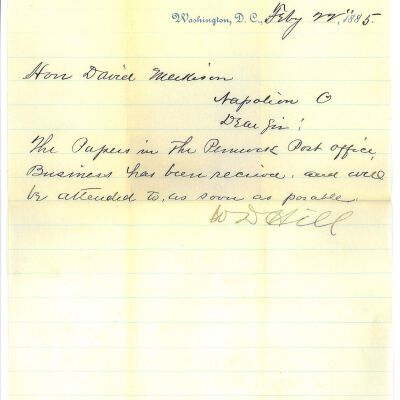 Washington, D. C., Feby 22", 1885.
Hon David Meekison
Napolion O
Dear Sir!
The Papers in the Post office
Business has been recived. and will
be attended to, as soon as posable.
W D Hill